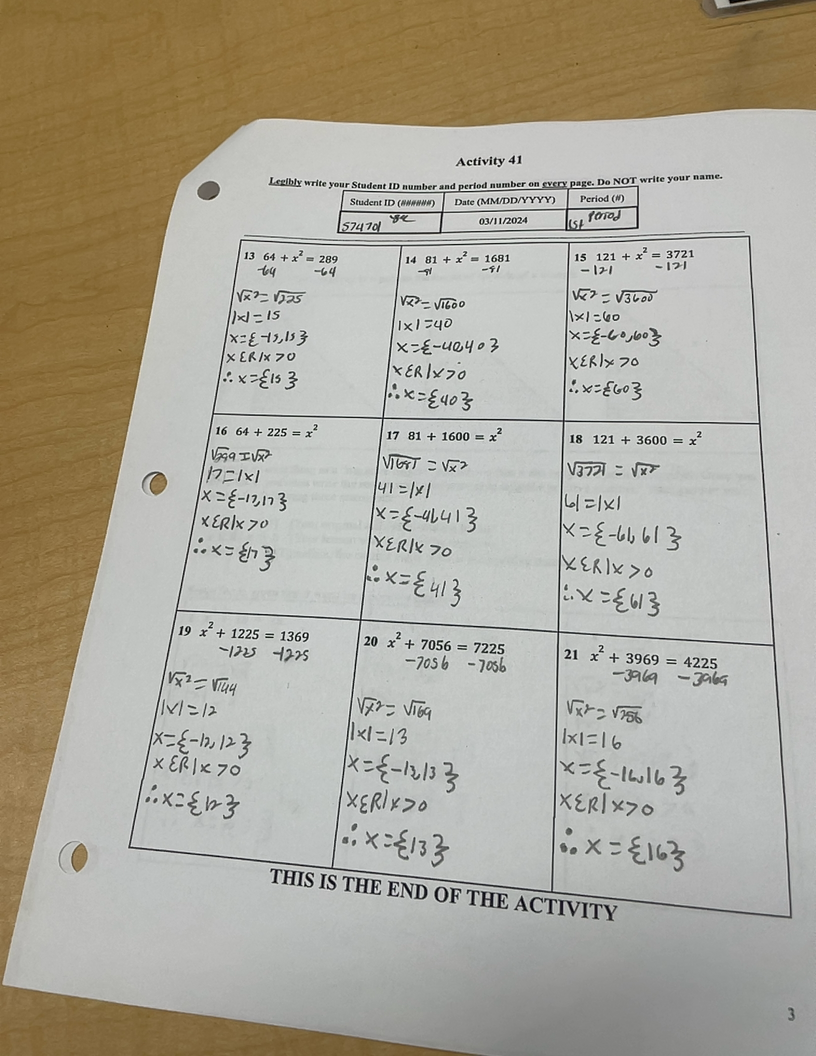 Activity 41
Legibly write your Student ID number and period number on every page. Do NOT write your name.
Student ID (######) Date (MM/DD/YYYY) Period (#)
574701 03/11/2024 1st Period
13 64 + x² = 289
-64 -64
√x² = √225
|x| = 15
x = {-15,15}
xεR|x>0
∴ x = {15}
14 81 + x² = 1681
-81 -81
√x² = √1600
|x| = 40
x = {-40,40}
xεR|x>0
∴ x = {40}
15 121 + x² = 3721
-121 -121
√x² = √3600
|x| = 60
x = {-60,60}
xεR|x>0
∴ x = {60}
16 64 + 225 = x²
= √x²
17 = |x|
x = {-17,17}
xεR|x>0
∴ x = {17}
17 81 + 1600 = x²
√1681 = √x²
41 = |x|
x = {-41,41}
xεR|x>0
∴ x = {41}
18 121 + 3600 = x²
√3721 = √x²
61 = |x|
x = {-61,61}
xεR|x>0
∴ x = {61}
19 x² + 1225 = 1369
-1225 -1225
√x² = √144
|x| = 12
x = {-12,12}
xεR|x>0
∴ x = {12}
20 x² + 7056 = 7225
-7056 -7056
√x² = √169
|x| = 13
x = {-13,13}
xεR|x>0
∴ x = {13}
21 x² + 3969 = 4225
-3969 -3969
√x² = √256
|x| = 16
x = {-16,16}
xεR|x>0
∴ x = {16}
THIS IS THE END OF THE ACTIVITY
3